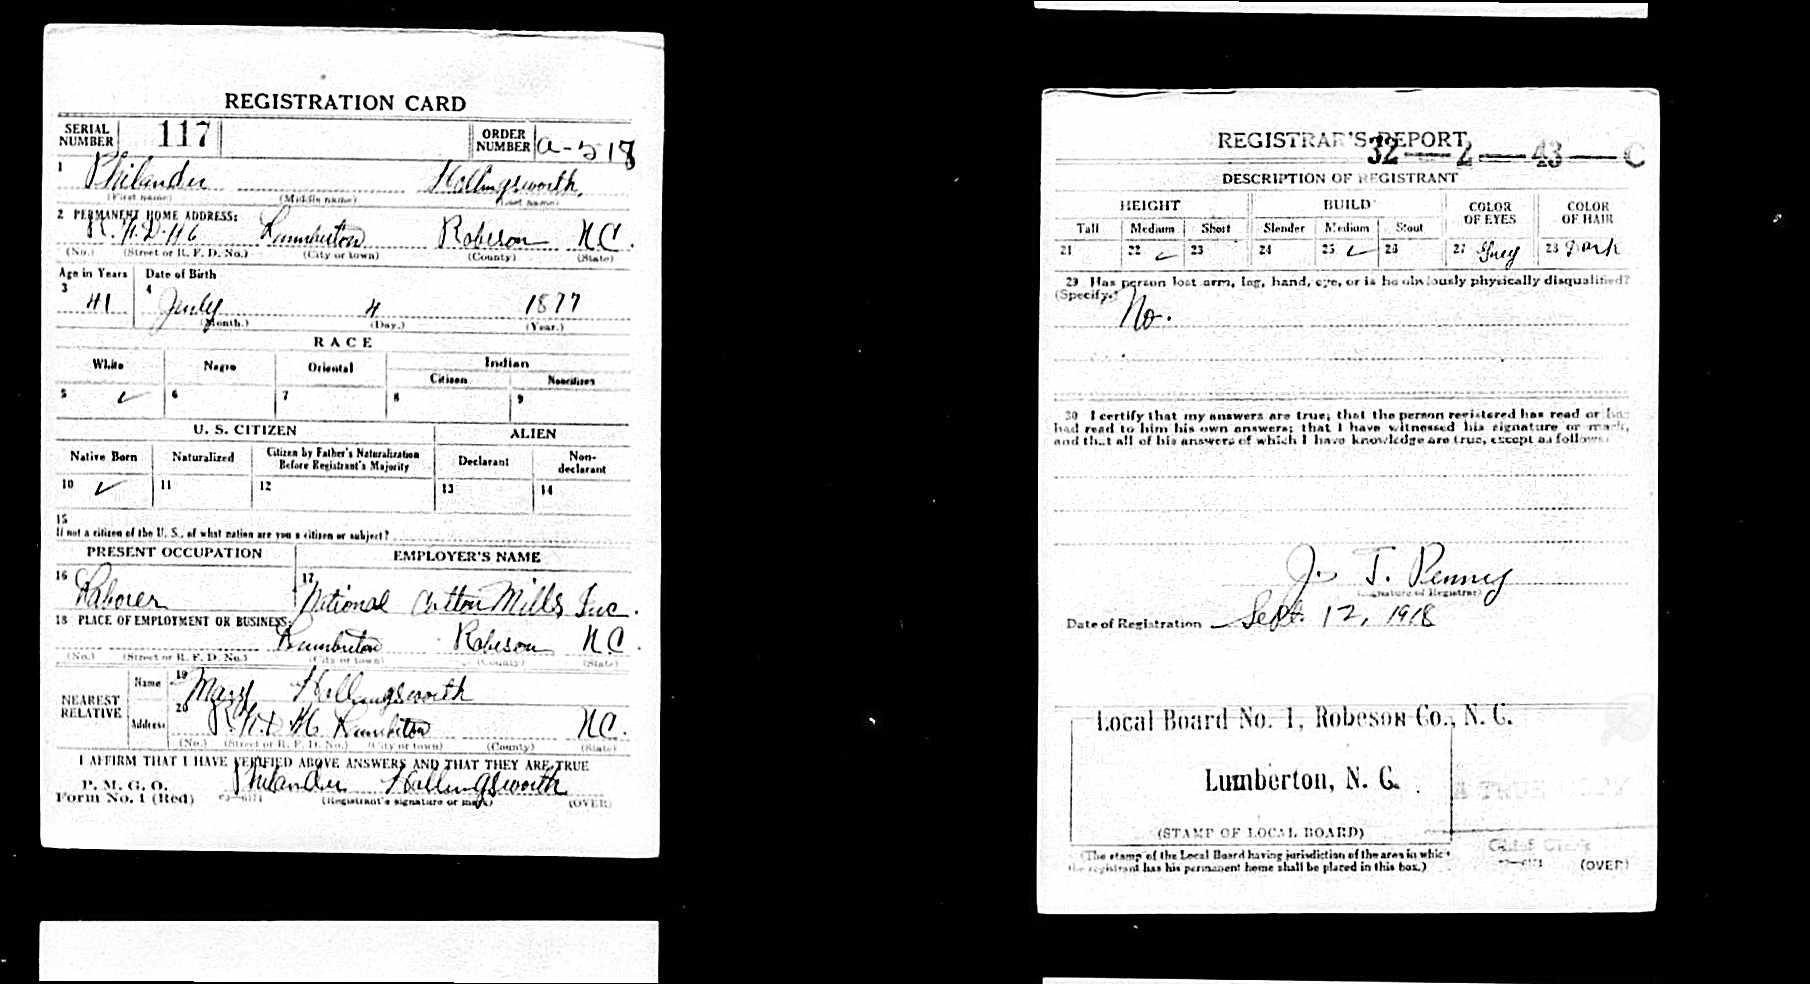 REGISTRATION CARD
SERIAL NUMBER 117 ORDER NUMBER a-518
1 Philander Hollingsworth
(First name) (Middle name) (Last name)
2 PERMANENT HOME ADDRESS:
R.F.D. #6 Lumberton Robeson N.C.
(No.) (Street or R. F. D. No.) (City or town) (County) (State)
Age in Years Date of Birth
3 41 4 July 4 1877
(Month.) (Day.) (Year.)
RACE
White Negro Oriental Indian
Citizen Noncitizen
5 ✓ 6 7 8 9
U. S. CITIZEN ALIEN
Native Born Naturalized Citizen by Father's Naturalization Before Registrant's Majority Declarant Non-declarant
10 ✓ 11 12 13 14
15
If not a citizen of the U. S., of what nation are you a citizen or subject?
PRESENT OCCUPATION EMPLOYER'S NAME
16 Laborer 17 National Cotton Mills Inc.
18 PLACE OF EMPLOYMENT OR BUSINESS:
Lumberton Robeson N.C.
(No.) (Street or R. F. D. No.) (City or town) (County) (State)
NEAREST RELATIVE
Name 19 Mary Hollingsworth
Address 20 R.F.D. #6 Lumberton N.C.
(No.) (Street or R. F. D. No.) (City or town) (County) (State)
I AFFIRM THAT I HAVE VERIFIED ABOVE ANSWERS AND THAT THEY ARE TRUE
P. M. G. O.
Form No. 1 (Red) Philander Hollingsworth
(Registrant's signature or mark) (OVER)
REGISTRAR'S REPORT
32—2—43—C
DESCRIPTION OF REGISTRANT
HEIGHT BUILD COLOR OF EYES COLOR OF HAIR
Tall Medium Short Slender Medium Stout
21 22 ✓ 23 24 25 ✓ 26 27 Grey 28 Dark
29 Has person lost arm, leg, hand, eye, or is he obviously physically disqualified?
(Specify.) No.
30 I certify that my answers are true; that the person registered has read or has
had read to him his own answers; that I have witnessed his signature or mark,
and that all of his answers of which I have knowledge are true, except as follows:
J. T. Penny
(Signature of Registrar)
Date of Registration Sept. 12, 1918
Local Board No. 1, Robeson Co., N. C.
Lumberton, N. C.
(STAMP OF LOCAL BOARD)
(The stamp of the Local Board having jurisdiction of the area in which
the registrant has his permanent home shall be placed in this box.)
(OVER)